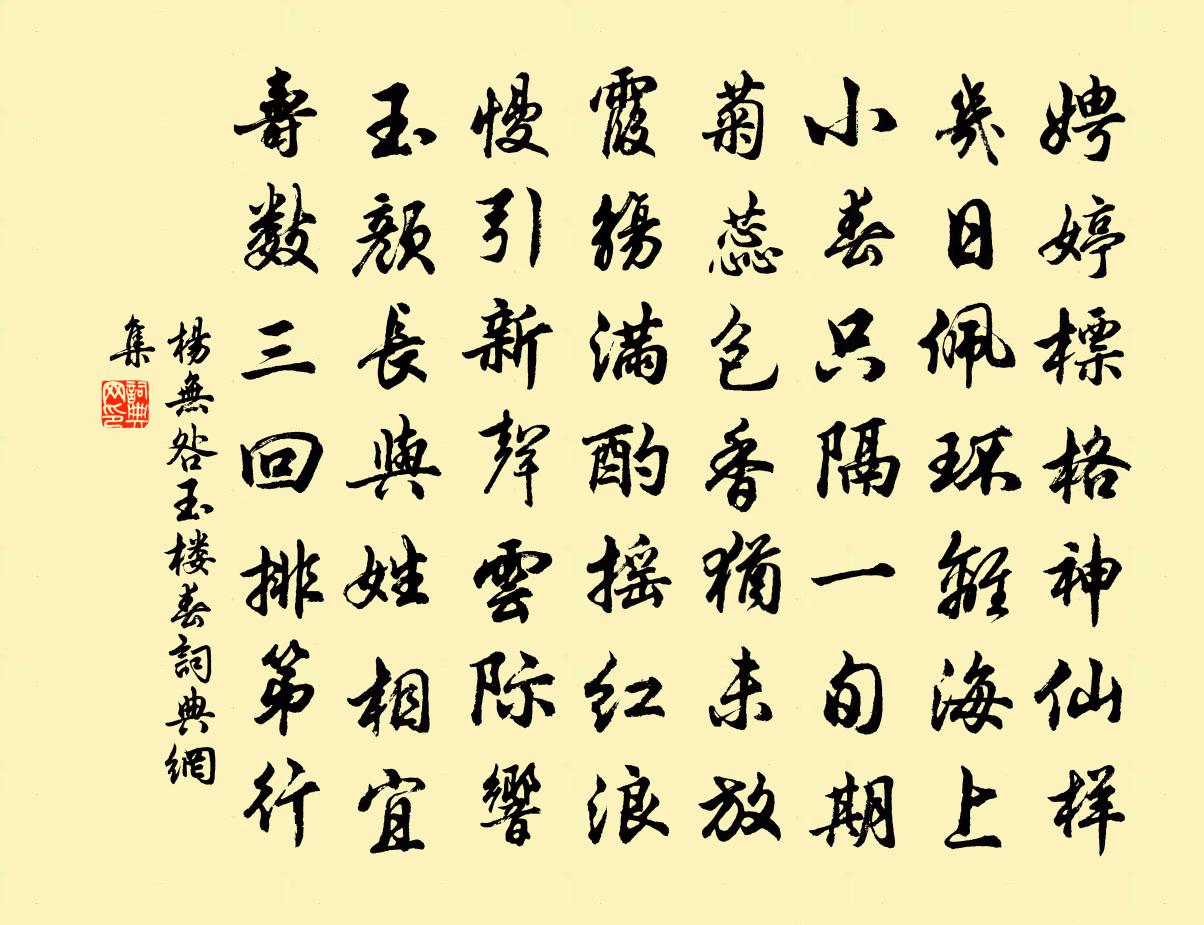 娉婷標格神仙样
幾日佩環離海上
小春只隔一旬期
菊蕊包香猶未放
霞觴滿酌摇红浪
慢引新聲雲际響
玉顏長與姓相宜
壽数三回排第行
楊無咎玉楼春詞典網
集
詞典
网印